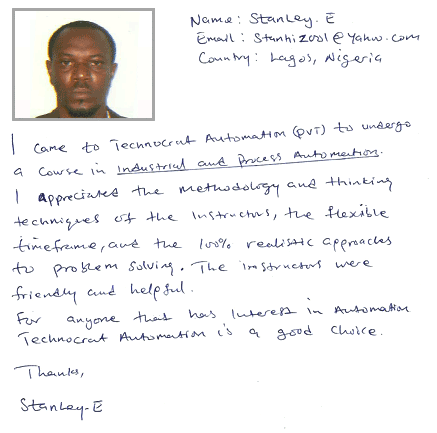 Name: Stanley. E
Email: Stanhizool@Yahoo.com
Country: Lagos, Nigeria
I came to Technocrat Automation (PVT) to undergo
a Course in Industrial and Process Automation.
I appreciated the methodology and thinking
techniques of the Instructors, the flexible
timeframe, and the 100% realistic approaches
to problem solving. The instructors were
friendly and helpful.
For anyone that has Interest in Automation
Technocrat Automation is a good choice.
Thanks,
Stanley-E